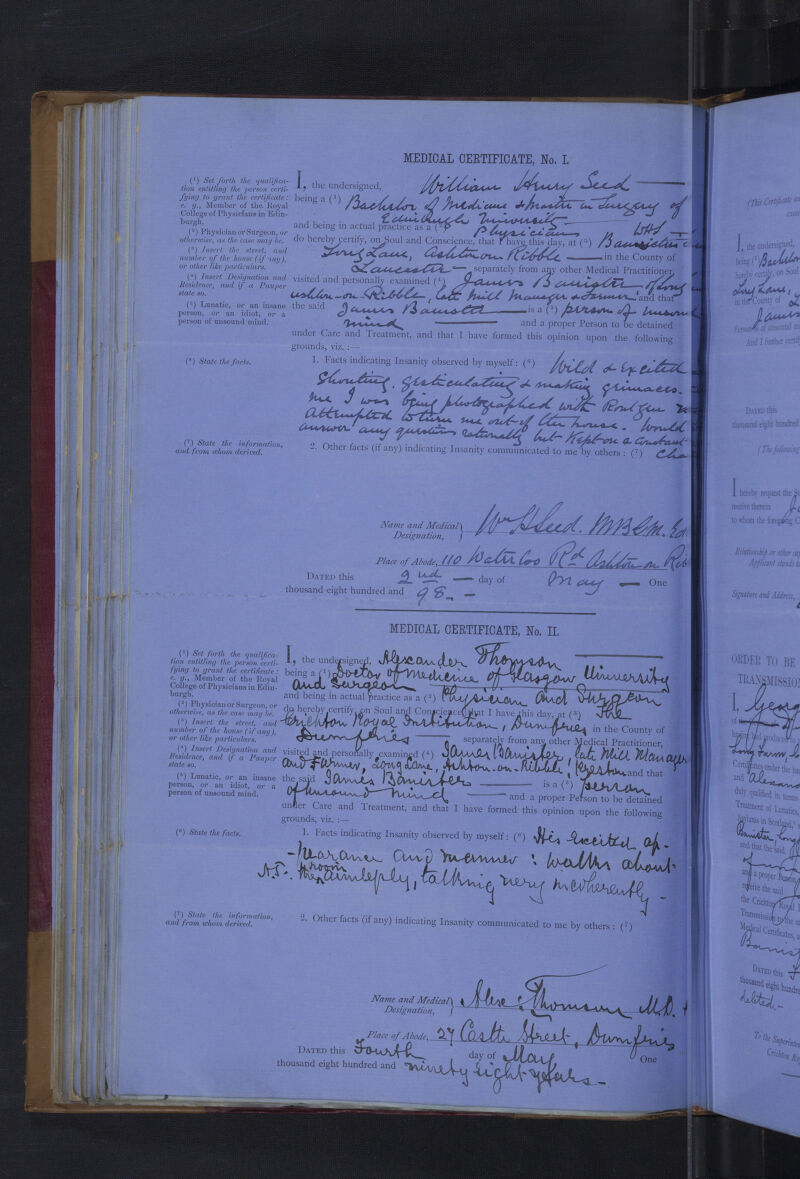 MEDICAL CERTIFICATE, No. I.
(¹) Set forth the qualifica-
tion entitling the person certi-
fying to grant the certificate:
e. g., Member of the Royal
College of Physicians in Edin-
burgh.
(²) Physician or Surgeon, or
otherwise, as the case may be.
(³) Insert the street, and
number of the house (if any),
or other like particulars.
(⁴) Insert Designation and
Residence, and if a Pauper
state so.
(⁵) Lunatic, or an insane
person, or an idiot, or a
person of unsound mind.
I, the undersigned, William Henry Seed
being a (¹) Bachelor of Medicine & Master in Surgery of
Edinburgh University
and being in actual practice as a (²) Physician WHS
do hereby certify, on Soul and Conscience, that I have this day, at (³)
Long Lane, Ashton on Ribble in the County of
Lancaster separately from any other Medical Practitioner,
visited and personally examined (⁴) James Banister, of Long
Ashton-on-Ribble, late Mill Manager & Farmer and that
the said James Banister is a (⁵) person of unsound
mind and a proper Person to be detained
under Care and Treatment, and that I have formed this opinion upon the following
grounds, viz. :—
(⁶) State the facts.
1. Facts indicating Insanity observed by myself: (⁶) Wild & excited
Shouting, gesticulating & making grimaces.
me I was being photographed with Rontgen
Attempted to turn me out of the house. Would
answer any questions rationally but kept on a constant
(⁷) State the information,
and from whom derived.
2. Other facts (if any) indicating Insanity communicated to me by others: (⁷)
Name and Medical
Designation, Wm H Seed. M B C M. Ed
Place of Abode, 110 Waterloo Rd Ashton on Rib
DATED this 2nd day of May One
thousand eight hundred and 98.
MEDICAL CERTIFICATE, No. II.
(¹) Set forth the qualifica-
tion entitling the person certi-
fying to grant the certificate:
e. g., Member of the Royal
College of Physicians in Edin-
burgh.
(²) Physician or Surgeon, or
otherwise, as the case may be.
(³) Insert the street, and
number of the house (if any),
or other like particulars.
(⁴) Insert Designation and
Residence, and if a Pauper
state so.
(⁵) Lunatic, or an insane
person, or an idiot, or a
person of unsound mind.
I, the undersigned, Alexander Thomson
being a (¹) Doctor of Medicine of Glasgow University
and Surgeon
and being in actual practice as a (²) Physician and Surgeon
do hereby certify, on Soul and Conscience, that I have this day, at (³) The
Crichton Royal Institution, Dumfries in the County of
Dumfries separately from any other Medical Practitioner,
visited and personally examined (⁴) James Banister, late Mill Manager
and Farmer, Long Lane, Ashton-on-Ribble, Preston and that
the said James Banister is a (⁵) person
of unsound mind and a proper Person to be detained
under Care and Treatment, and that I have formed this opinion upon the following
grounds, viz. :—
(⁶) State the facts.
1. Facts indicating Insanity observed by myself: (⁶) His excited ap-
-pearance and manner: walks about
A.T. the room aimlessly, talking very incoherently -
(⁷) State the information,
and from whom derived.
2. Other facts (if any) indicating Insanity communicated to me by others: (⁷)
Name and Medical
Designation, Alex: Thomson M.D.
Place of Abode, 27 Castle Street, Dumfries
DATED this Fourth day of May One
thousand eight hundred and ninety eight years -
I, the undersigned,
Long Lane,
in the County of
And I further
DATED this
thousand eight hundred
(The following
I hereby request the
receive therein
to whom the foregoing
Relationship or other
Applicant stands
Signature and Address,
ORDER TO BE
TRANSMISSION
I, George
Long Farm,
duly qualified
Treatment of Lunatics,
Banister Long
and that the said
a proper Person
receive the said
the Crichton Royal
Transmission
Medical Certificates,
DATED this
thousand eight hundred
deleted.-
To the Superintendent
Crichton